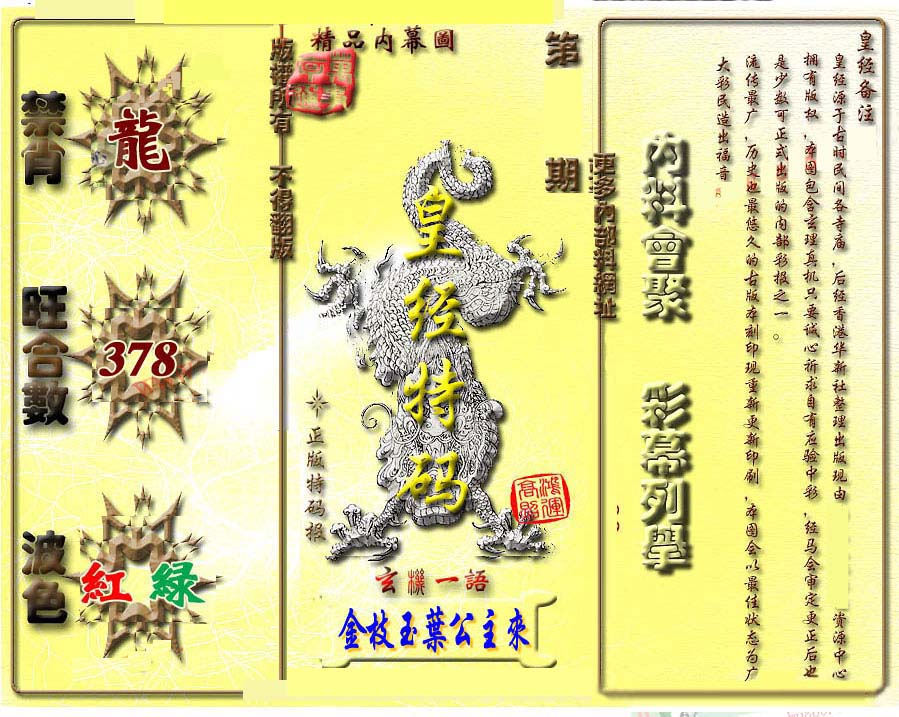 禁肖
龍
旺合數
378
波色
紅 綠
版權所有 不得翻版
精品内幕圖
第 期
皇经特码
正版特码报
鴻運高照
玄機一語
金枝玉葉公主來
更多内部料網址
内料會聚 彩幕列舉
皇经备注
皇经源于古时民间各寺庙,后经香港华新社整理出版现由 资源中心
拥有版权,本图包含玄理真机只要诚心祈求自有应验中彩,经马会审定更正后也
是少数可正式出版的内部彩报之一。
流传最广,历史也最悠久的古版本刻印现重新更新印刷,本图会以最佳状态为广
大彩民造出福音